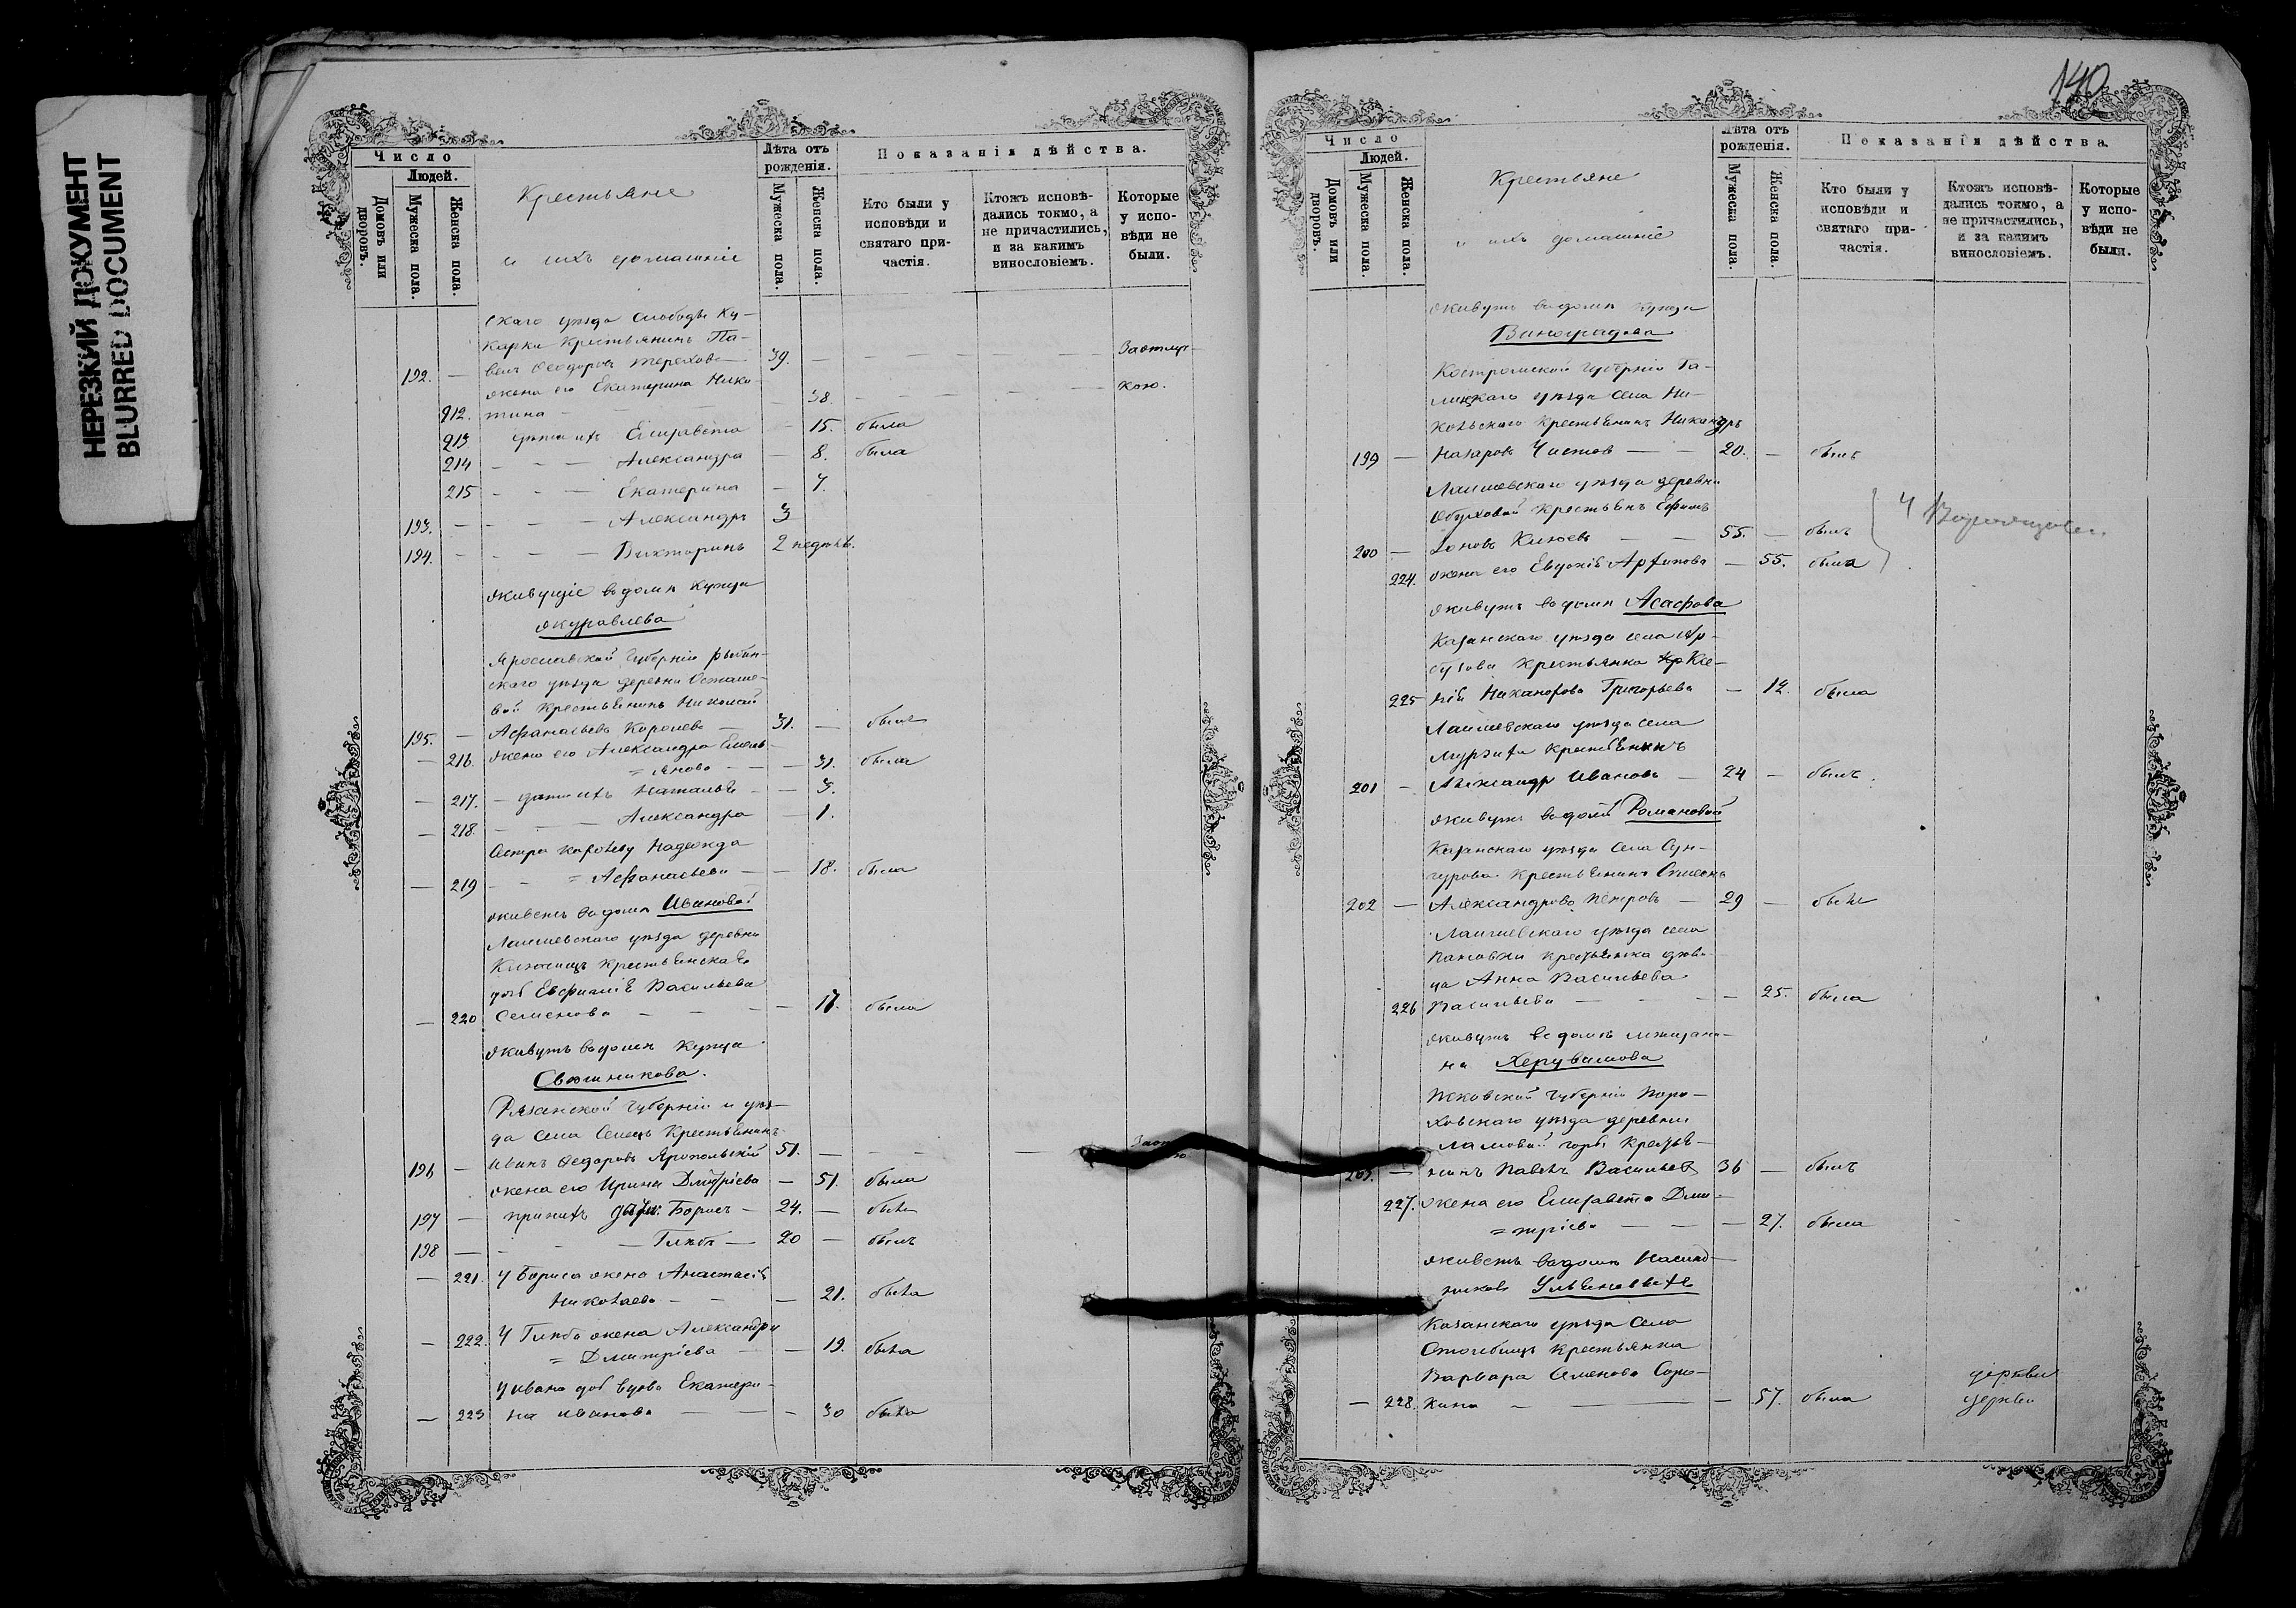 НЕРЕЗКИЙ ДОКУМЕНТ
BLURRED DOCUMENT
Число
Людей.
Домовъ или дворовъ.
Мужеска пола.
Женска пола.
Крестьяне
и ихъ домашніе
Лѣта отъ рожденія.
Мужеска пола.
Женска пола.
Показанія дѣйства.
Кто были у исповѣди и святаго причастія.
Ктожъ исповѣдались токмо, а не причастились, и за какимъ винословіемъ.
Которые у исповѣди не были.
скаго уѣзда слободы Ку-
карки крестьянинъ Па-
192. — велъ Ѳеодоровъ Тереховъ 39. — — — — Заотлуч-
жена его Екатерина Ники- кою.
912. тина — — — 38.
213 дѣти ихъ Елизавета — 15. была
214 - - — Александра — 8. была
215 - - — Екатерина — 7.
193. — - - — Александръ 3
194. - - - — Викторинъ 2 недѣль.
живущіе въ домѣ купца
Журавлева
Ярославской губерніи Рыбин-
скаго уѣзда деревни Осташе-
вой крестьянинъ Николай
195. — Афанасьевъ Королевъ — 31. — былъ
— 216. жена его Александра Емель-
= янова — — 31. была
— 217. — дѣти ихъ Наталья — — 3.
— 218. — — — Александра — 1.
Сестра Королеву Надежда
— 219 - - = Афанасьева — — 18. была
живетъ въ домѣ Ивановой
Лаишевскаго уѣзда деревни
Ключищъ крестьянская
доч. Евфимія Васильева
— 220 Семенова — - - — 17. была
живутъ въ домѣ купца
Свѣшникова.
Рязанской губерніи и уѣз-
да села Сенецъ крестьянинъ
196 — Иванъ Ѳедоровъ Яропольскій 51. — - - —
жена его Ирина Дмитріева — 51. была
197 — при нихъ дѣти: Борисъ — 24. — былъ
198 — - - — Глѣбъ — 20 — былъ
— 221. у Бориса жена Анастасія
Николаева — — — 21. была
— 222. у Глѣба жена Александра
= Дмитріева — — 19. была
у Ивана доч. вдова Екатери-
— 223 на Иванова — — 30 была
140
Число
Людей.
Домовъ или дворовъ.
Мужеска пола.
Женска пола.
Крестьяне
и ихъ домашніе
Лѣта отъ рожденія.
Мужеска пола.
Женска пола.
Показанія дѣйства.
Кто были у исповѣди и святаго причастія.
Ктожъ исповѣдались токмо, а не причастились, и за какимъ винословіемъ.
Которые у исповѣди не были.
живутъ въ домѣ купца
Виноградова
Костромской губерніи Га-
личскаго уѣзда села Ни-
кольскаго крестьянинъ Никандръ
199 — Назаровъ Чистов — — 20. — былъ
Лаишевскаго уѣзда деревни
Обуховой крестьян. Ефимъ
200 — Іоновъ Князевъ — — 55. — былъ
224. жена его Евдокія Архипова — 55. была
живутъ въ домѣ Асафова
Казанскаго уѣзда села
крестьянка Ксе-
225 нія Никанорова Григорьева — 12. была
Лаишевскаго уѣзда села
Мурзихи крестьянинъ
201 — Александр Ивановъ — 24 — былъ.
живутъ въ домѣ Романовой
Казанскаго уѣзда села Сун-
гурова крестьянинъ Симеонъ
202 — Александровъ Петровъ — 29 — былъ
Лаишевскаго уѣзда села
Пановки крестьянка дѣви-
ца Анна Васильева
226 Васильева — — — — 25. была
живутъ въ домѣ мѣщани-
на Херувимова
Псковской губерніи Поро-
ховскаго уѣзда деревни
Ламовой горы крестья-
203. — нинъ Павелъ Васильев 36 — былъ
227. жена его Елизавета Дми-
= тріева — — — 27. была
живетъ въ домѣ Наслѣд-
никовъ Ульяновыхъ
Казанскаго уѣзда села
крестьянка
Варвара Семенова Соро-
— 228. кина - — — 57. была
церкви
церкви